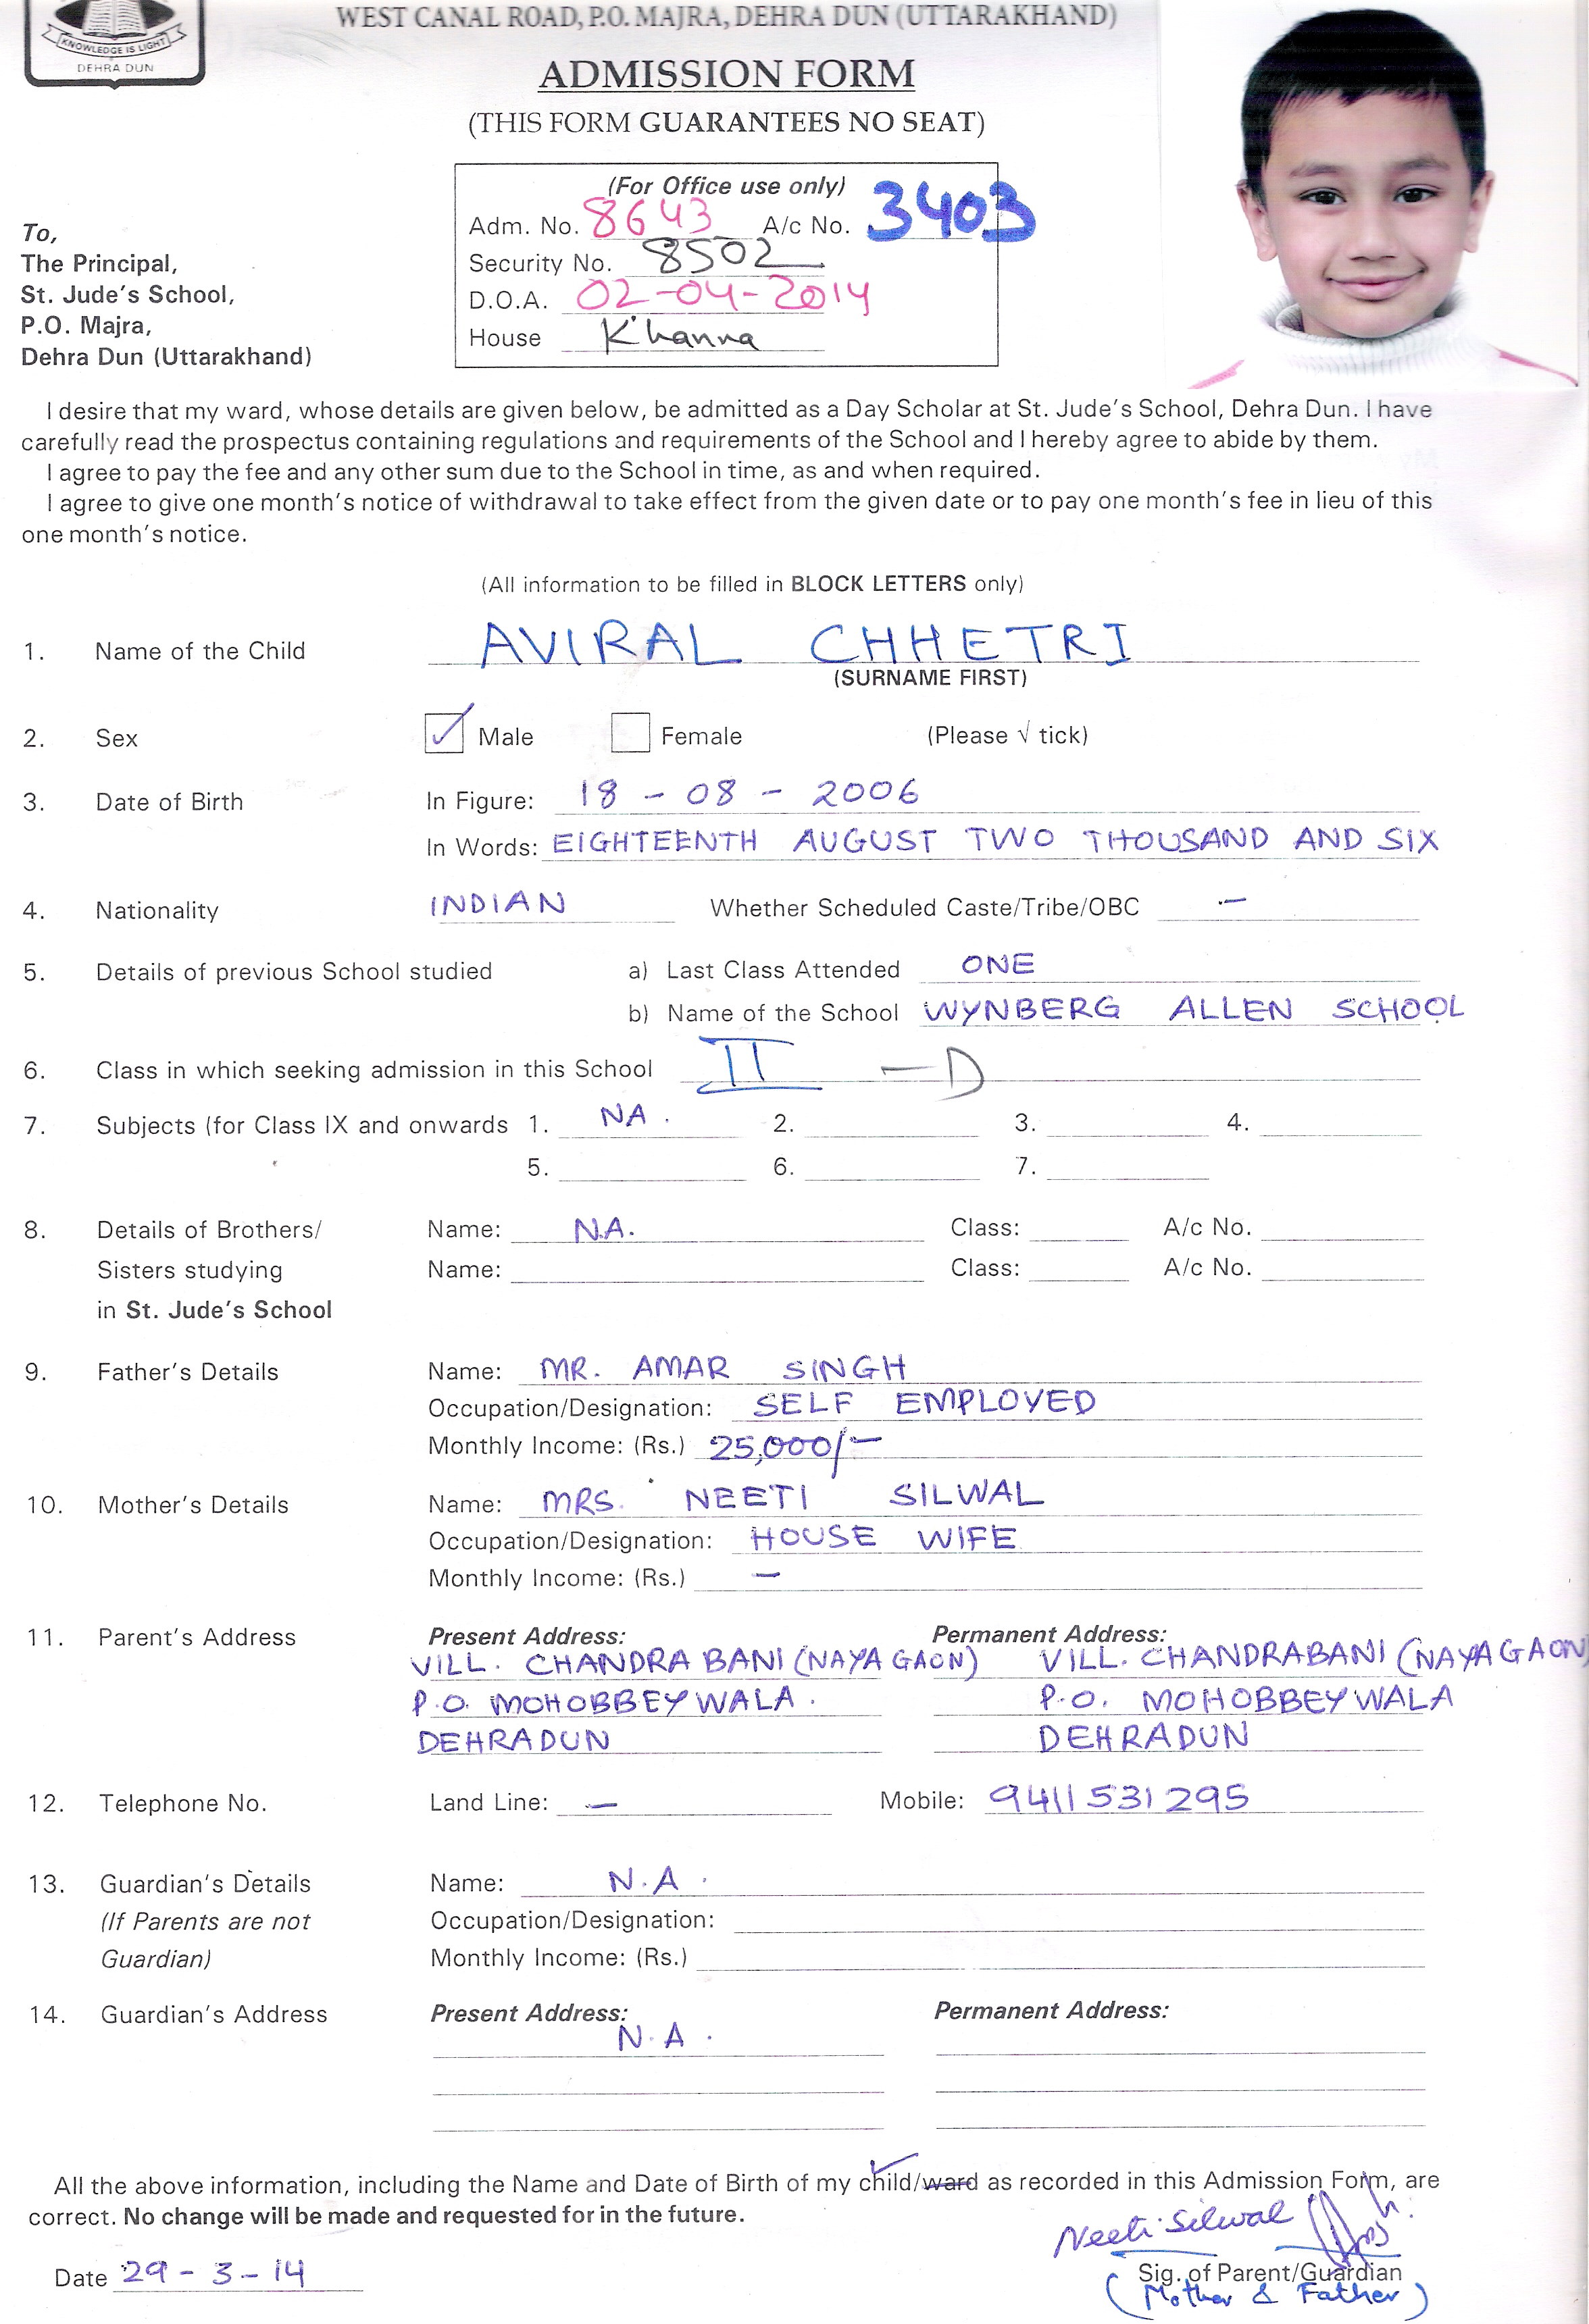 WEST CANAL ROAD, P.O. MAJRA, DEHRA DUN (UTTARAKHAND)
KNOWLEDGE IS LIGHT
DEHRA DUN
ADMISSION FORM
(THIS FORM GUARANTEES NO SEAT)
(For Office use only)
Adm. No. 8643 A/c No. 3403
Security No. 8502
D.O.A. 02-04-2014
House Khanna
To,
The Principal,
St. Jude's School,
P.O. Majra,
Dehra Dun (Uttarakhand)
I desire that my ward, whose details are given below, be admitted as a Day Scholar at St. Jude's School, Dehra Dun. I have
carefully read the prospectus containing regulations and requirements of the School and I hereby agree to abide by them.
I agree to pay the fee and any other sum due to the School in time, as and when required.
I agree to give one month's notice of withdrawal to take effect from the given date or to pay one month's fee in lieu of this
one month's notice.
(All information to be filled in BLOCK LETTERS only)
1. Name of the Child AVIRAL CHHETRI
(SURNAME FIRST)
2. Sex ✓ Male Female (Please √ tick)
3. Date of Birth In Figure: 18 - 08 - 2006
In Words: EIGHTEENTH AUGUST TWO THOUSAND AND SIX
4. Nationality INDIAN Whether Scheduled Caste/Tribe/OBC -
5. Details of previous School studied a) Last Class Attended ONE
b) Name of the School WYNBERG ALLEN SCHOOL
6. Class in which seeking admission in this School II - D
7. Subjects (for Class IX and onwards 1. NA. 2. 3. 4.
5. 6. 7.
8. Details of Brothers/ Name: N.A. Class: A/c No.
Sisters studying Name: Class: A/c No.
in St. Jude's School
9. Father's Details Name: MR. AMAR SINGH
Occupation/Designation: SELF EMPLOYED
Monthly Income: (Rs.) 25,000/-
10. Mother's Details Name: MRS. NEETI SILWAL
Occupation/Designation: HOUSE WIFE
Monthly Income: (Rs.) -
11. Parent's Address Present Address: Permanent Address:
VILL. CHANDRA BANI (NAYA GAON) VILL. CHANDRABANI (NAYA GAON)
P.O. MOHOBBEY WALA. P.O. MOHOBBEY WALA
DEHRADUN DEHRADUN
12. Telephone No. Land Line: - Mobile: 9411531295
13. Guardian's Details Name: N.A.
(If Parents are not Occupation/Designation:
Guardian) Monthly Income: (Rs.)
14. Guardian's Address Present Address: Permanent Address:
N.A.
All the above information, including the Name and Date of Birth of my child/ward as recorded in this Admission Form, are
correct. No change will be made and requested for in the future.
Neeti Silwal
Date 29-3-14
Sig. of Parent/Guardian
(Mother & Father)